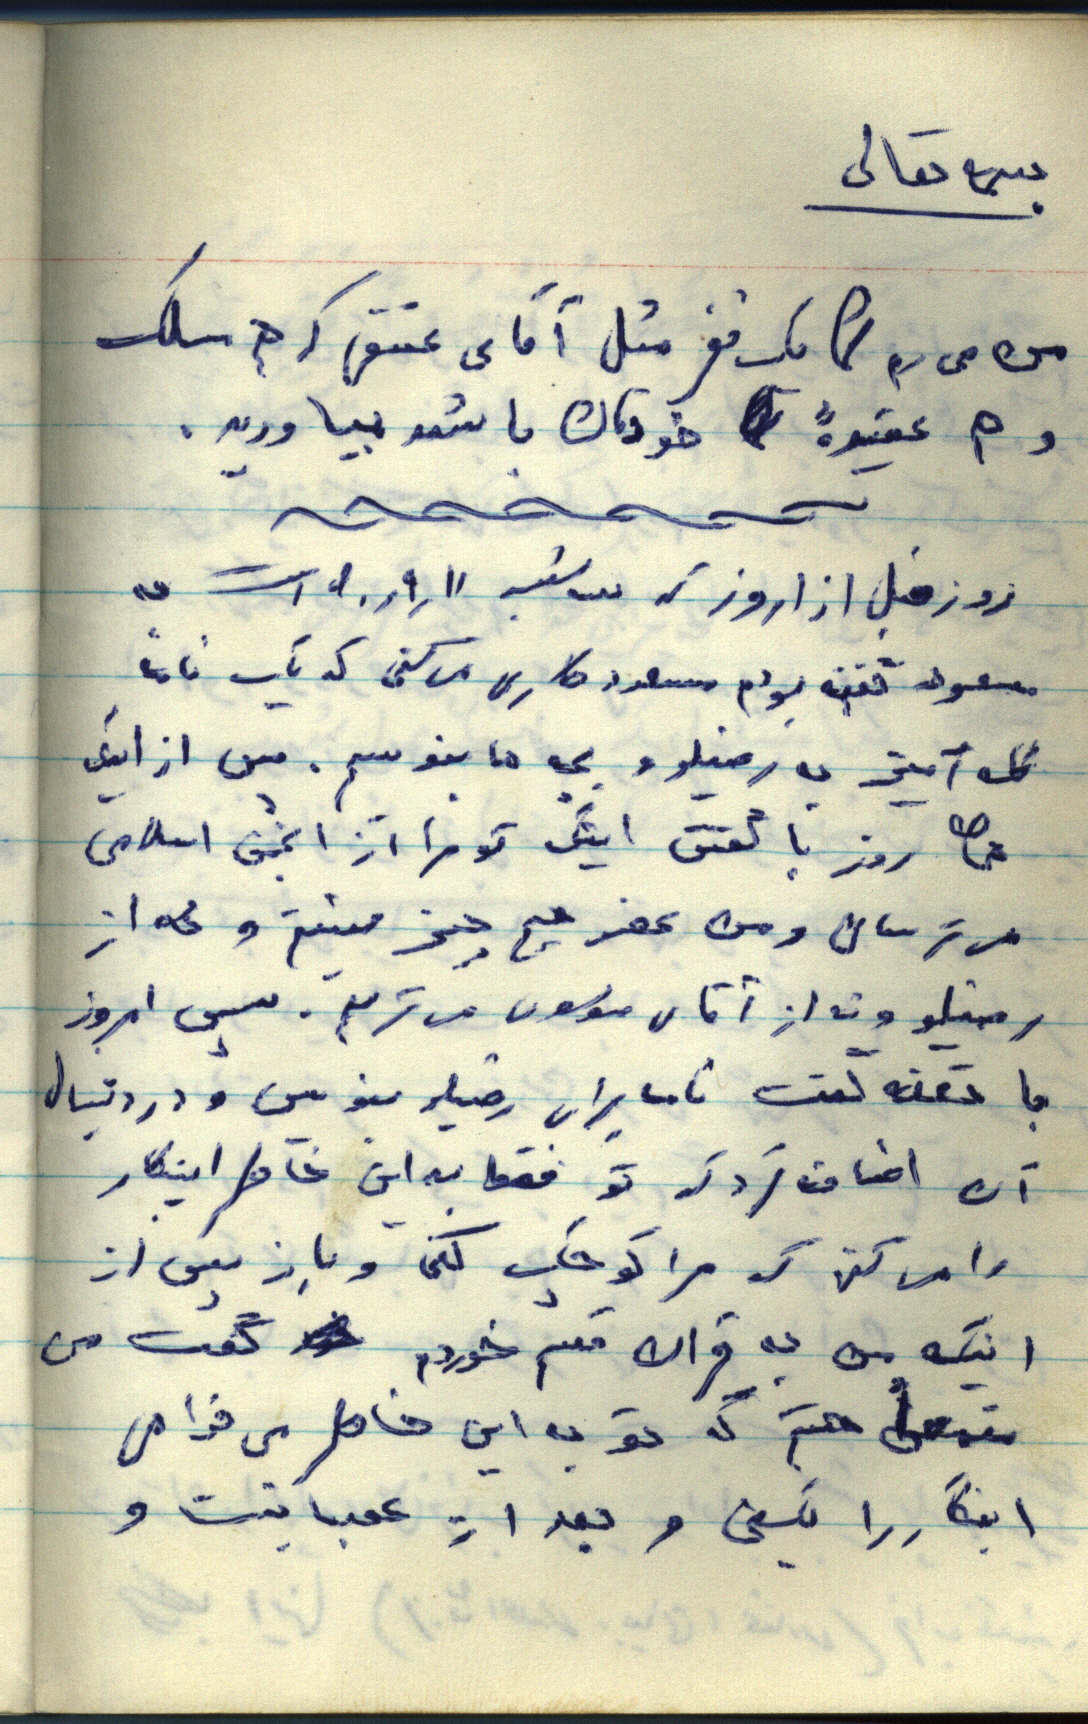 بسمه تعالی
من می روم شما یک نفر مثل آقای عشقی که هم مسلک
و هم عقیدهٔ خودتان باشد بیاورید.
روز قبل از امروز که سه شنبه است به
مسعود گفته بودم مسعود کاری می کنی که یک نامهٔ
گله آمیز به رضیلو و بچه ها بنویسم. پس از اینکه
روز با گفتن اینکه تو مرا از انجمن اسلامی
می ترسانی و من عضو هیچ چیز نیستم و نه از
رضیلو و نه از آقای موسوی می ترسم. سپس امروز
با طعنه گفت نامه برای رضیلو بنویس و در دنبال
آن اضافه کرد که تو فقط به این خاطر اینکار
را می کنی که مرا کوچک کنی و باز پس از
اینکه من به قرآن قسم خوردم گفت من
مطمئن هستم که تو به این خاطر می خواهی
اینکار را بکنی و بعد از عصبانیت و